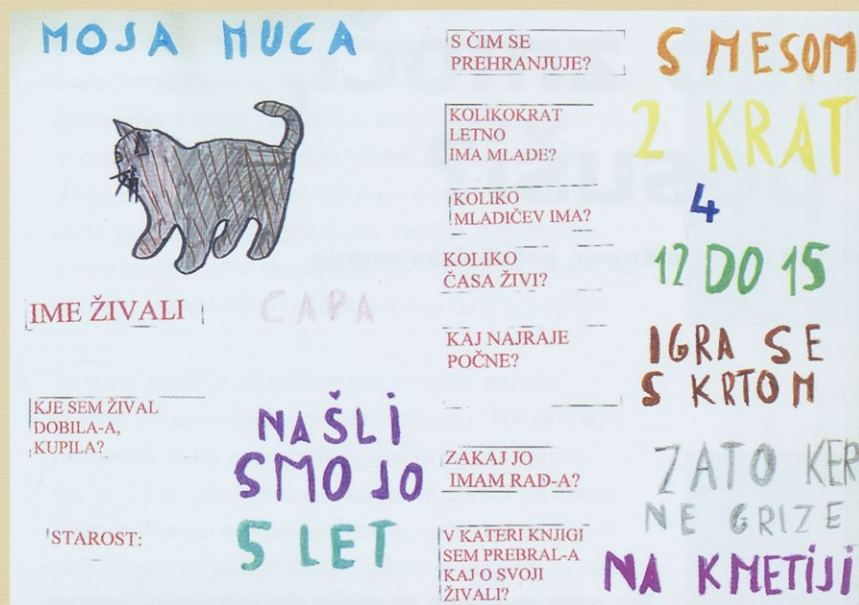 MOJA MUCA
IME ŽIVALI
CAPA
KJE SEM ŽIVAL
DOBILA-A,
KUPILA?
NAŠLI
SMO JO
STAROST:
5 LET
S ČIM SE
PREHRANJUJE?
S MESOM
KOLIKOKRAT
LETNO
IMA MLADE?
2 KRAT
KOLIKO
MLADIČEV IMA?
4
KOLIKO
ČASA ŽIVI?
12 DO 15
KAJ NAJRAJE
POČNE?
IGRA SE
S KRTOM
ZAKAJ JO
IMAM RAD-A?
ZATO KER
NE GRIZE
V KATERI KNJIGI
SEM PREBRAL-A
KAJ O SVOJI
ŽIVALI?
NA KMETIJI